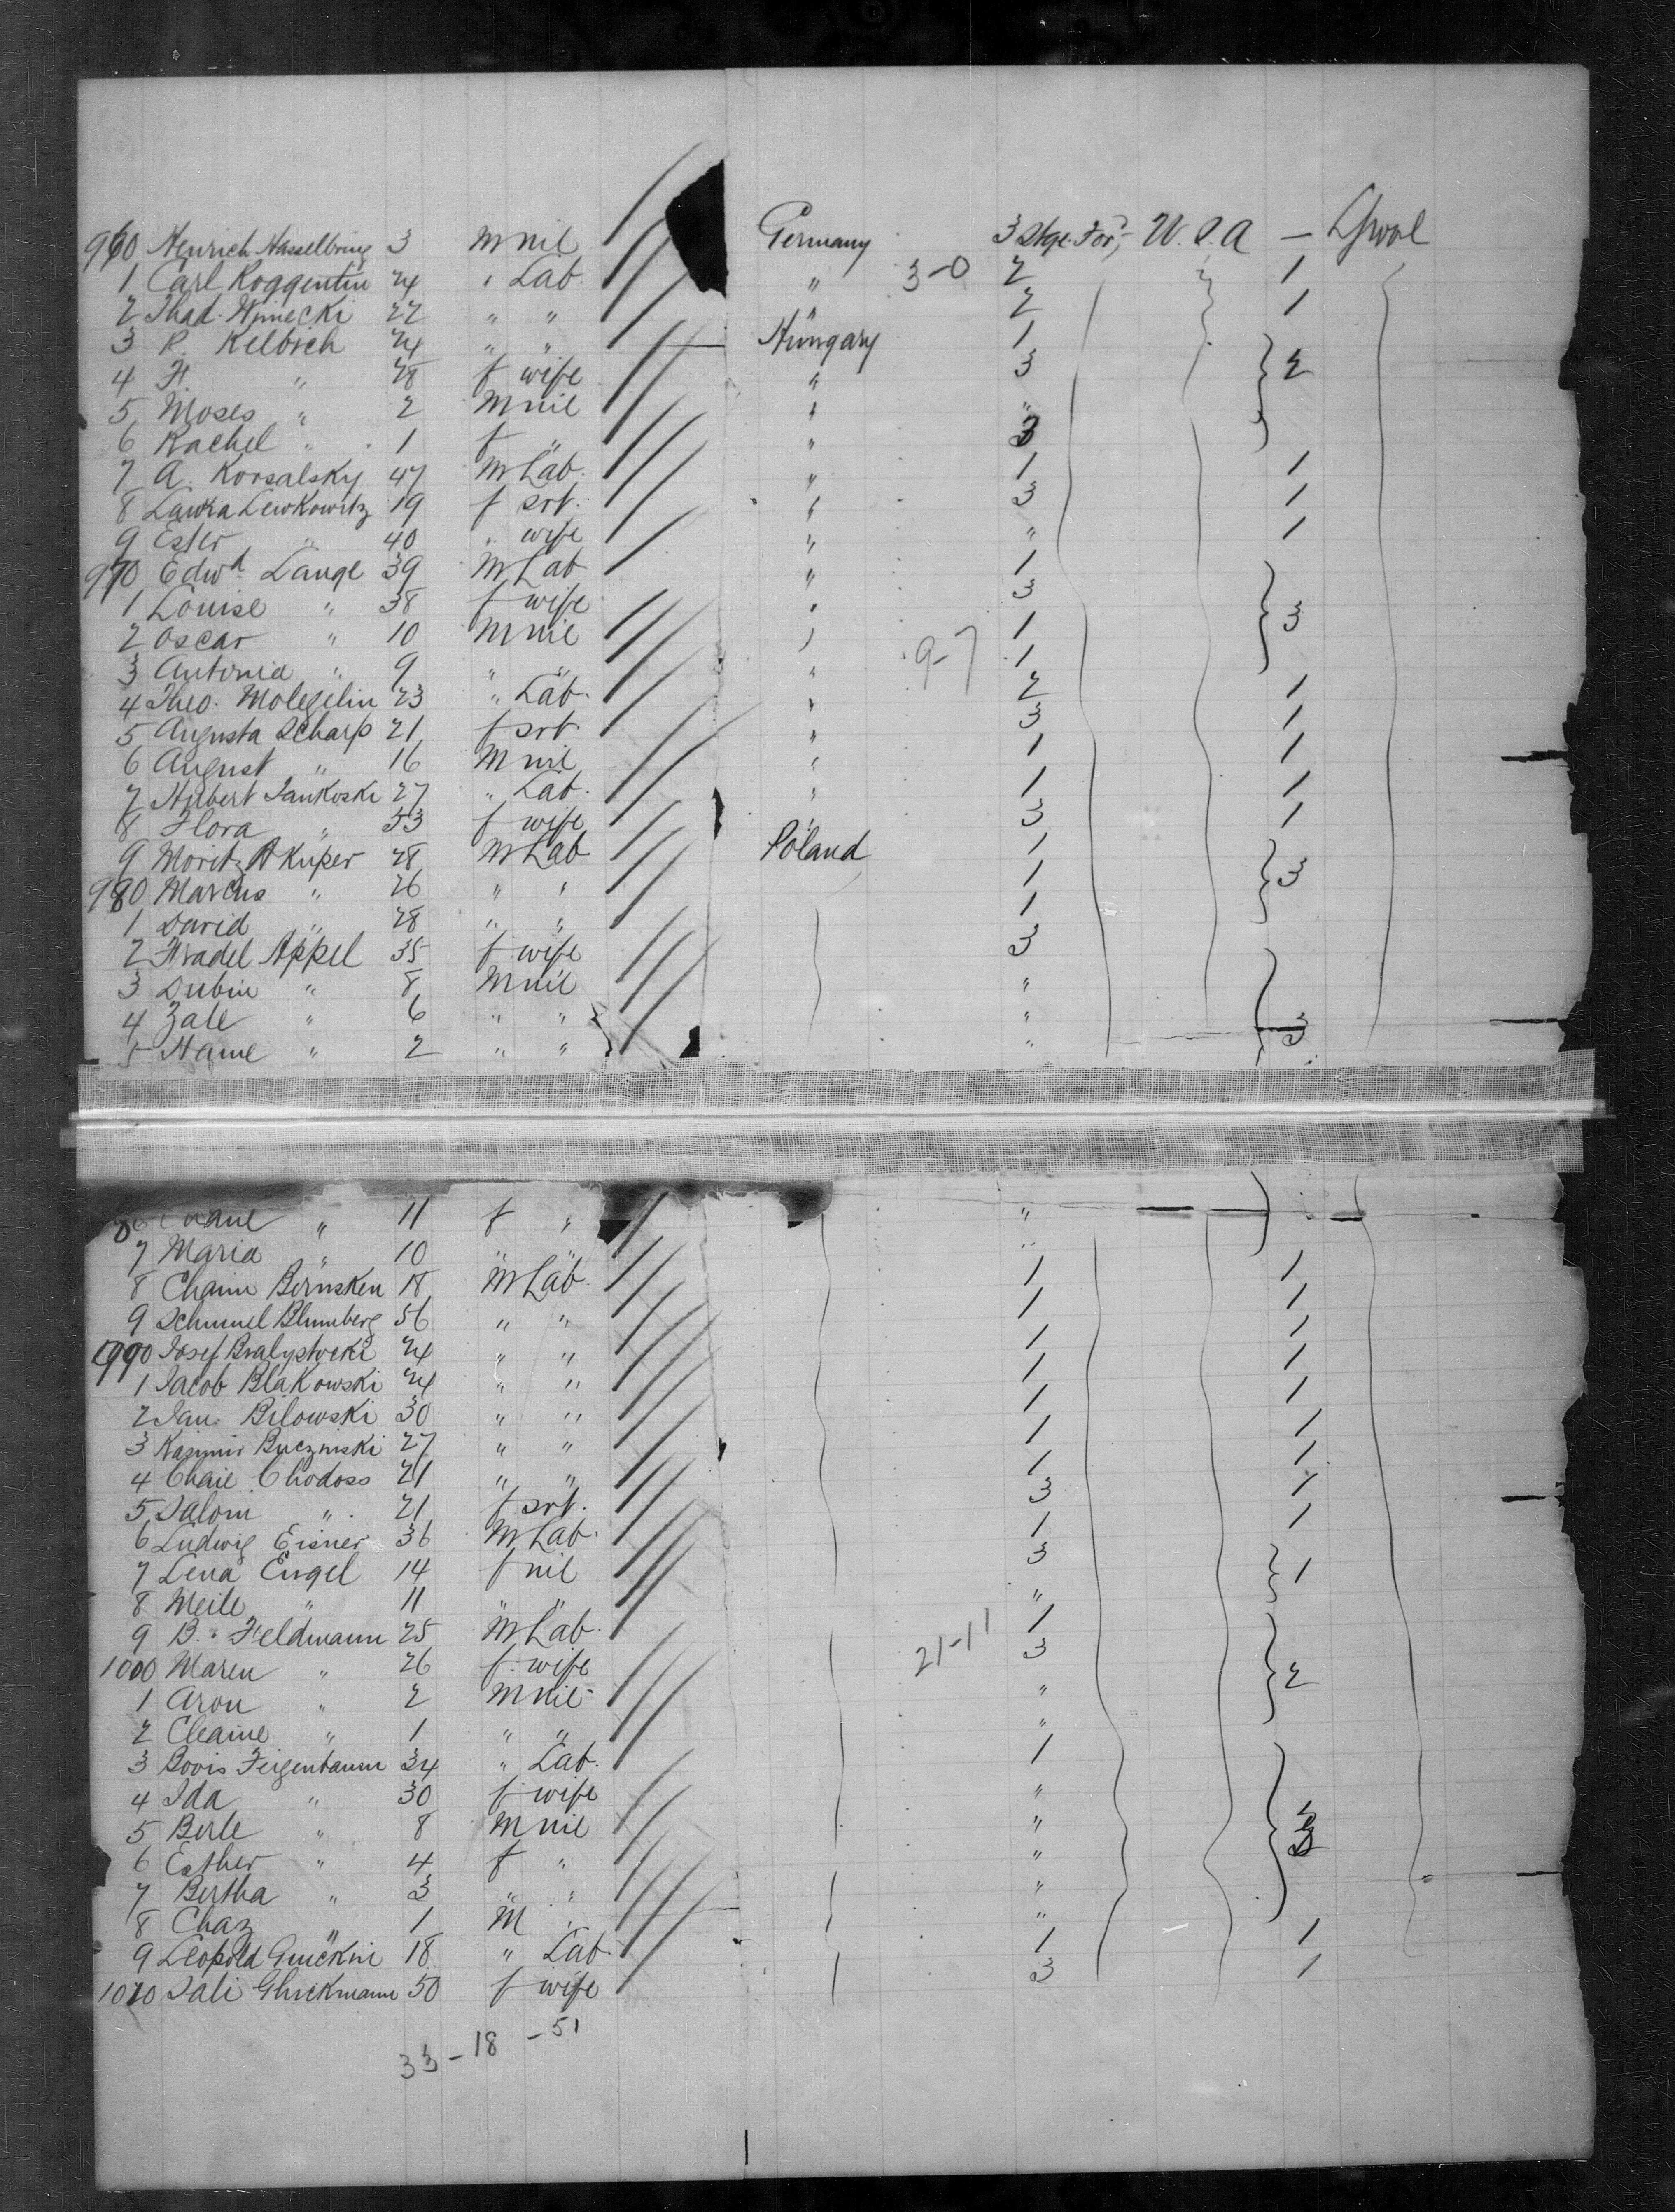 960 Henrich Hasselbring 3 m nil Germany 3 Stge. For, - U.S.A - Lpool
1 Carl Roggentin 24 " Lab. " 3-0 2 1
2 Thad. 22 " " " 2 1
3 P. Kelbsch 24 " " Hungary 1
4 H. " 28 f wife " 3 2
5 Moses " 2 m nil " "
6 Rachel " 1 f " " 3
7 A. Korsalsky 47 m Lab. " 1 1
8 Lawra Lewkowitz 19 f srt. " 3 1
9 Ester " 40 " wife " " 1
970 Edwd Lange 39 m Lab " 1
1 Louise " 38 f wife " 3 3
2 Oscar " 10 m nil " 1
3 Antonia " 9 " " " 9-7 1
4 Theo. Molegelin 23 " Lab. " 2 1
5 Augusta Scharp 21 f srt " 3 1
6 August " 16 m nil " 1 1
7 Hubert Jankoski 27 " Lab. " 1 1
8 Flora " 33 f wife " 3 1
9 Moritz A Kuper 28 m Lab Poland 1
980 Marcus " 26 " " 1 3
1 David " 28 " " 1
2 Hradel Appel 35 f wife 3
3 Dubin " 8 m nil "
4 Zale " 6 " " " 3
5 Hame " 2 " " "
" 11 f " "
7 Maria " 10 " " "
8 Chaim Bernsken 18 m Lab. 1 1
9 Schmuel Blumberg 56 " " 1 1
990 Josef Bralystocki 24 " " 1 1
1 Jacob Blakowski 24 " " 1 1
2 Jan. Bilowski 30 " " 1 1
3 Kasimir Buczinski 27 " " 1 1
4 Chaie Chodoss 21 " " 1 1
5 Salom " 21 f srt. 3 1
6 Ludwig Eisner 36 m Lab. 1 1
7 Lena Engel 14 f nil 3 1
8 Meile " 11 " " "
9 B. Feldmann 25 m Lab. 1
1000 Maren " 26 f wife 21-11 3 2
1 Aron " 2 m nil "
2 Cleaine " 1 " " "
3 Boris Feigenbaum 34 " Lab. 1
4 Ida " 30 f wife "
5 Berle " 8 m nil " 3
6 Esther " 4 f " "
7 Bertha " 3 " " "
8 Chaz " 1 m " "
9 Leopold 18 " Lab. 1 1
1010 Sali Gluckmann 50 f wife 3 1
33-18-51